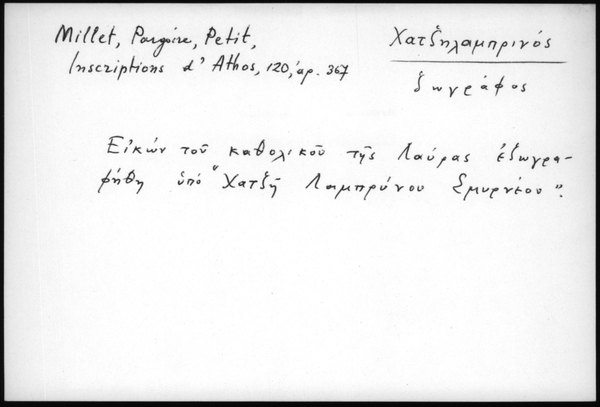 Millet, Pargoire, Petit,
Inscriptions d'Athos, 120, ἀρ. 367
Χατζηλαμπρινός
ζωγράφος
Εἰκὼν τοῦ καθολικοῦ τῆς Λαύρας ἐζωγρα-
φήθη ὑπό "Χατζῆ Λαμπρύνου Σμυρνέου".